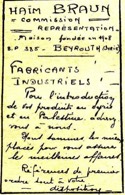 HAÏM BRAUN
COMMISSION
REPRÉSENTATION
Maison fondée en 1908
B.P. 335 - BEYROUTH
FABRICANTS
INDUSTRIELS !
Pour l'introduction
de vos produits en Syrie
et en Palestine, adressez
vous à nous
Nous sommes les mieux
placés pour vous assurer
les meilleures affaires
Références de premier
ordre sont à votre
disposition